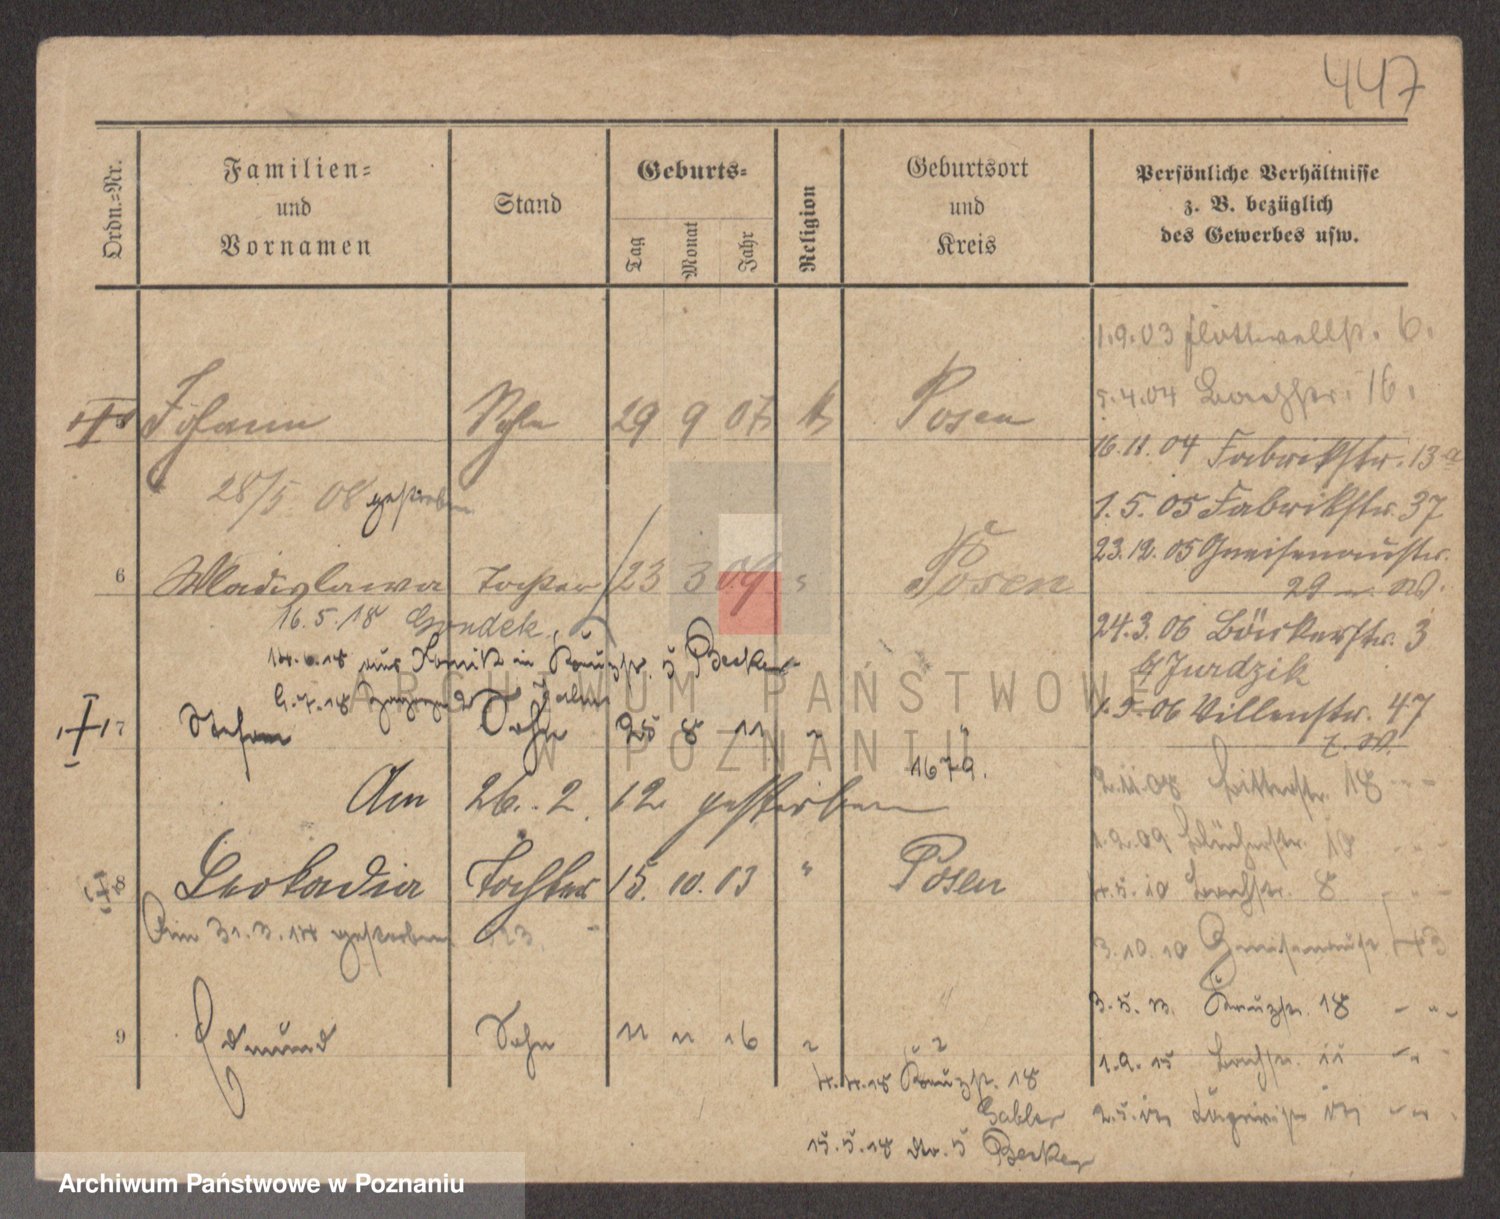 447
Ordn.-Nr.
Familien-
und
Vornamen
Stand
Geburts-
Tag
Monat
Jahr
Religion
Geburtsort
und
Kreis
Persönliche Verhältnisse
z. B. bezüglich
des Gewerbes usw.
Johann Sohn 29 9 07 Posen
28/5 08 gestorben
6 Wladislawa Tochter 23 3 09 " Posen
16.5.18
in Kreuzstr. 5 Becker
7 Stefan Sohn 25 8 11 "
1679.
Am 26. 2. 12 gestorben
8 Leokadia Tochter 15. 10. 13 " Posen
Am 31.3.14 gestorben 123
9 Edmund Sohn 11 11 16 "
4.4.18 Kreuzstr. 18
Gabler
15.5.18 5 Becker
1.9.03 Flottwellstr. 6.
5.4.04 Bachstr. 16.
16.11.04 Fabrikstr. 13a
1.5.05 Fabrikstr. 37
23.12.05 Gneisenaustr.
29
24.3.06 Bäckerstr. 3
Jurdzik
1.5.06 Villenstr. 47
2.11.08 Ritterstr. 18 " "
1.2.09 Blücherstr. 18 " "
4.5.10 Bachstr. 8 " "
3.10.10 Gneisenaustr. 43
3.5.13. Kreuzstr. 18 " "
1.9.15 Bachstr. 11 " "
ARCHIWUM PAŃSTWOWE
W POZNANIU
Archiwum Państwowe w Poznaniu